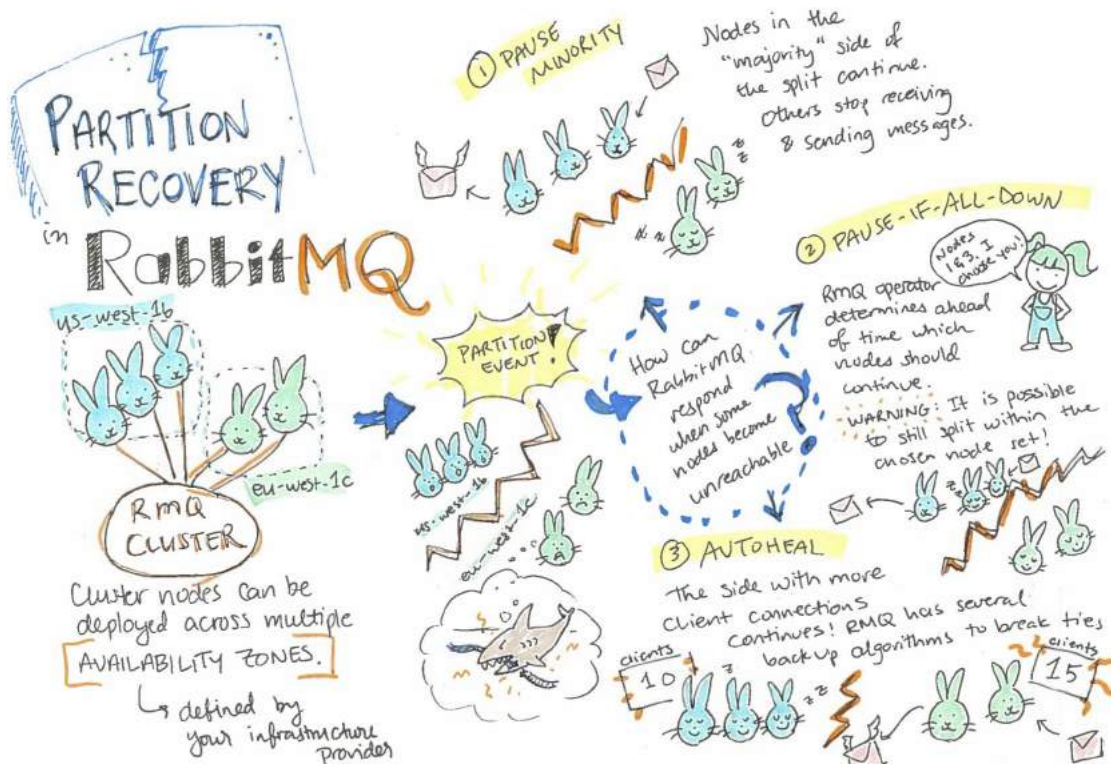 PARTITION
RECOVERY
in
RabbitMQ
us-west-1b
eu-west-1c
RMQ
CLUSTER
Cluster nodes can be
deployed across multiple
AVAILABILITY ZONES.
defined by
your infrastructure
provider
PARTITION
EVENT!
us-west-1b
eu-west-1c
How can
RabbitMQ
respond
when some
nodes become
unreachable?
① PAUSE
MINORITY
Nodes in the
"majority" side of
the split continue.
Others stop receiving
& sending messages.
z z
z z
② PAUSE-IF-ALL-DOWN
Nodes
1 & 3, I
choose you!
RMQ operator
determines ahead
of time which
nodes should
continue.
WARNING: It is possible
to still split within the
chosen node set!
z z
③ AUTOHEAL
The side with more
client connections
continues! RMQ has several
backup algorithms to break ties
clients
10
z
z z
clients
15